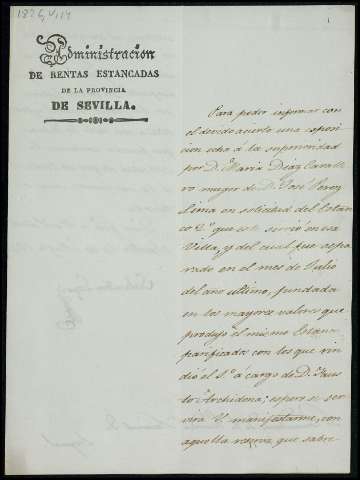 Administracion
DE RENTAS ESTANCADAS
DE LA PROVINCIA
DE SEVILLA.
Para poder informar con
el devido acierto una esposi
cion echa á la superioridad
por Dª Maria Diaz Cavalle
ro muger de Dn José Perez
Lima en solicitud del Estan
co 2º que sirvió en esa
Villa, y del cual fue sepa
rado en el mes de Julio
del año ultimo, fundada
en los mayores valores que
produjo el mismo Estanco
parificados con los que rin
dió el 1º á cargo de Dn Faus
to Archidona; espero se ser
virá V. manifestarme, con
aquella reserva que sabre